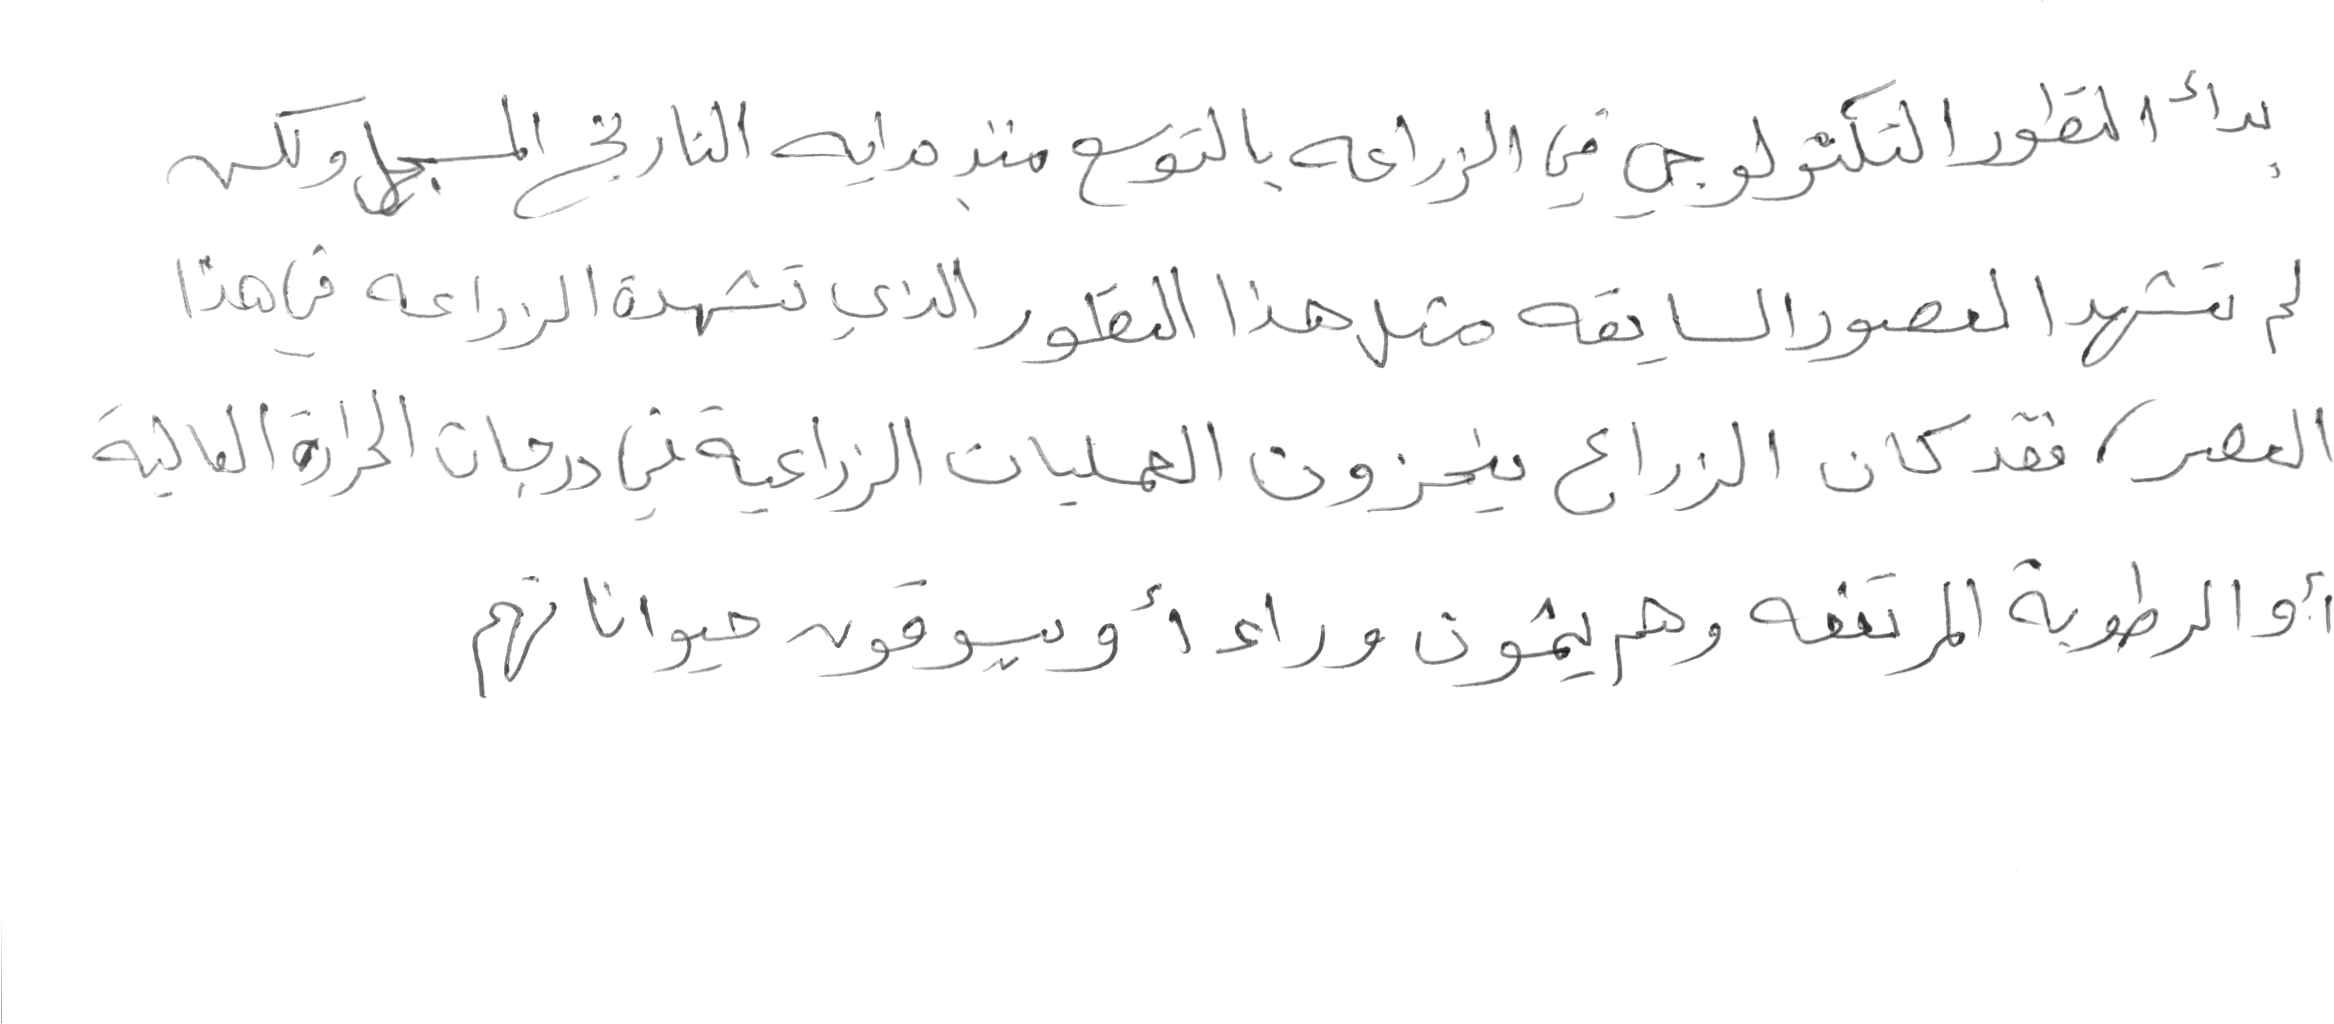 بدأ التطور التكنولوجي في الزراعه بالتوسع منذ بدايه التاريخ المسجل ولكن
لم تشهد العصور السابقه مثل هذا التطور الذي تشهدة الزراعه في هذا
العصر، فقد كان الزراع ينجزون العمليات الزراعية في درجات الحرارة العالية
أو الرطوبة المرتفعه وهم يمشون وراء أو يسوقون حيواناتهم